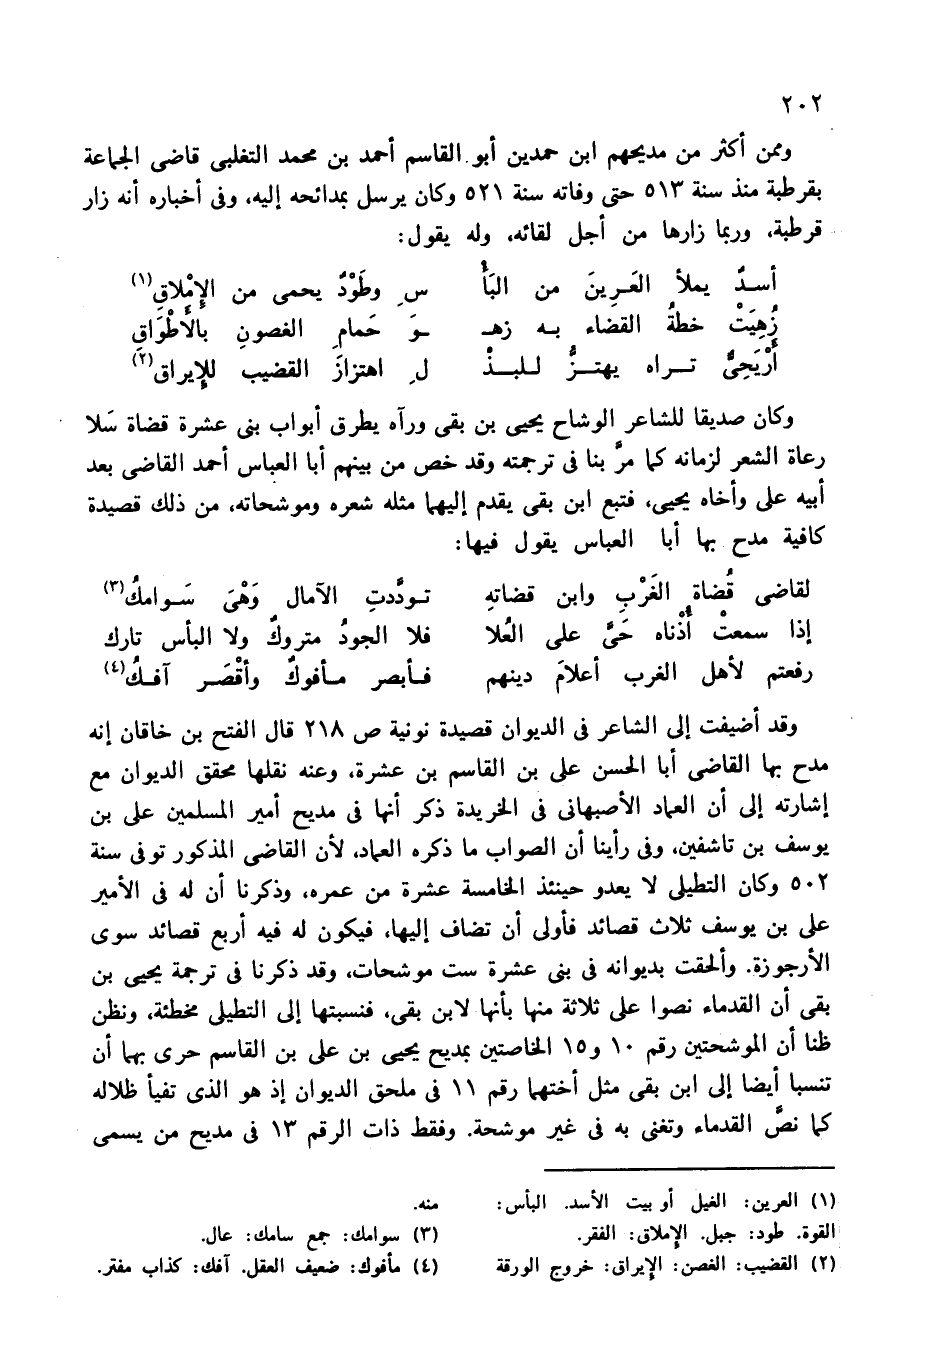 ٢٠٢
وممن أكثر من مديحهم ابن حمدين أبو القاسم أحمد بن محمد التغلبى قاضى الجماعة
بقرطبة منذ سنة ٥١٣ حتى وفاته سنة ٥٢١ وكان يرسل بمدائحه إليه، وفى أخباره أنه زار
قرطبة، وربما زارها من أجل لقائه، وله يقول:
أسدٌ يملأ العَرِينَ من البَأْ سِ وطَوْدٌ يحمى من الإِمْلاقِ(١)
زُهِيَتْ خطةُ القضاء به زهـ ـوَ حَمامِ الغصونِ بالأَطْوَاقِ
أَرْيَحِىٌّ تــراه يهتــزُّ للبـذْ لِ اهتزازَ القضيب للإيراق(٢)
وكان صديقا للشاعر الوشاح يحيى بن بقى ورآه يطرق أبواب بنى عشرة قضاة سَلا
رعاة الشعر لزمانه كما مرَّ بنا فى ترجمته وقد خص من بينهم أبا العباس أحمد القاضى بعد
أبيه على وأخاه يحيى، فتبع ابن بقى يقدم إليهما مثله شعره وموشحاته، من ذلك قصيدة
كافية مدح بها أبا العباس يقول فيها:
لقاضى قُضاة الغَرْبِ وابن قضاتهِ تـودَّدتِ الآمال وَهْىَ سَـوامكُ(٣)
إذا سمعتْ أُذْناه حَىَّ على العُلا فلا الجودُ متروكٌ ولا البأس تارك
رفعتم لأهل الغرب أعلامَ دينهم فـأبصر مـأفوكٌ وأقْصَـر آفـكُ(٤)
وقد أضيفت إلى الشاعر فى الديوان قصيدة نونية ص ٢١٨ قال الفتح بن خاقان إنه
مدح بها القاضى أبا الحسن على بن القاسم بن عشرة، وعنه نقلها محقق الديوان مع
إشارته إلى أن العماد الأصبهانى فى الخريدة ذكر أنها فى مديح أمير المسلمين على بن
يوسف بن تاشفين، وفى رأينا أن الصواب ما ذكره العماد، لأن القاضى المذكور توفى سنة
٥٠٢ وكان التطيلى لا يعدو حينئذ الخامسة عشرة من عمره، وذكرنا أن له فى الأمير
على بن يوسف ثلاث قصائد فأولى أن تضاف إليها، فيكون له فيه أربع قصائد سوى
الأرجوزة. وألحقت بديوانه فى بنى عشرة ست موشحات، وقد ذكرنا فى ترجمة يحيى بن
بقى أن القدماء نصوا على ثلاثة منها بأنها لابن بقى، فنسبتها إلى التطيلى مخطئة، ونظن
ظنا أن الموشحتين رقم ١٠ و١٥ الخاصتين بمديح يحيى بن على بن القاسم حرى بهما أن
تنسبا أيضا إلى ابن بقى مثل أختهما رقم ١١ فى ملحق الديوان إذ هو الذى تفيأ ظلاله
كما نصَّ القدماء وتغنى به فى غير موشحة. وفقط ذات الرقم ١٣ فى مديح من يسمى
(١) العرين: الغيل أو بيت الأسد. البأس:
القوة. طود: جبل. الإملاق: الفقر.
(٢) القضيب: الغصن: الإيراق: خروج الورقة
منه.
(٣) سوامك: جمع سامك: عال.
(٤) مأفوك: ضعيف العقل. آفك: كذاب مفتر.